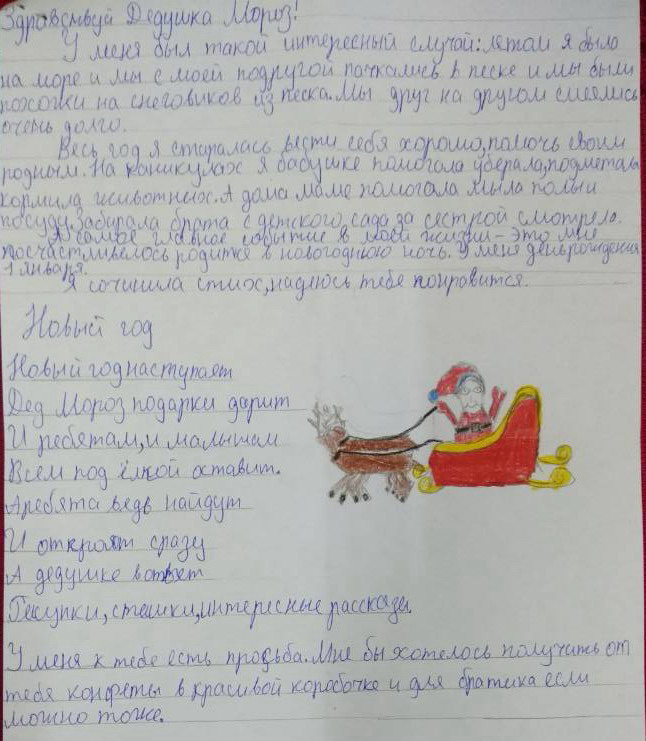 Здравствуй Дедушка Мороз!
У меня был такой интересный случай: летом я была
на море и мы с моей подругой пачкались в песке и мы были
похожи на снеговиков из песка. Мы друг на другом смеялись
очень долго.
Весь год я старалась вести себя хорошо, помочь своим
родным. На каникулах я бабушке помогала уберала, подметала
кормила животных. А дома маме помогала мыла полы и
посуду. Забирала брата с детского сада, за сестрой смотрела.
А самое главное событие в моей жизни - это мне
посчастливелось родится в новогоднюю ночь. У меня день рождения
1 января.
Я сочинила стих, надеюсь тебе понравится.
Новый год
Новый год наступает
Дед Мороз подарки дарит
И ребятам, и малышам
Всем под ёлкой оставит.
А ребята ведь найдут
И откроют сразу
А дедушке в ответ
Рисунки, стешки, интересные рассказы.
У меня к тебе есть просьба. Мне бы хотелось получить от
тебя конфеты в красивой коробочке и для братика если
можно тоже.